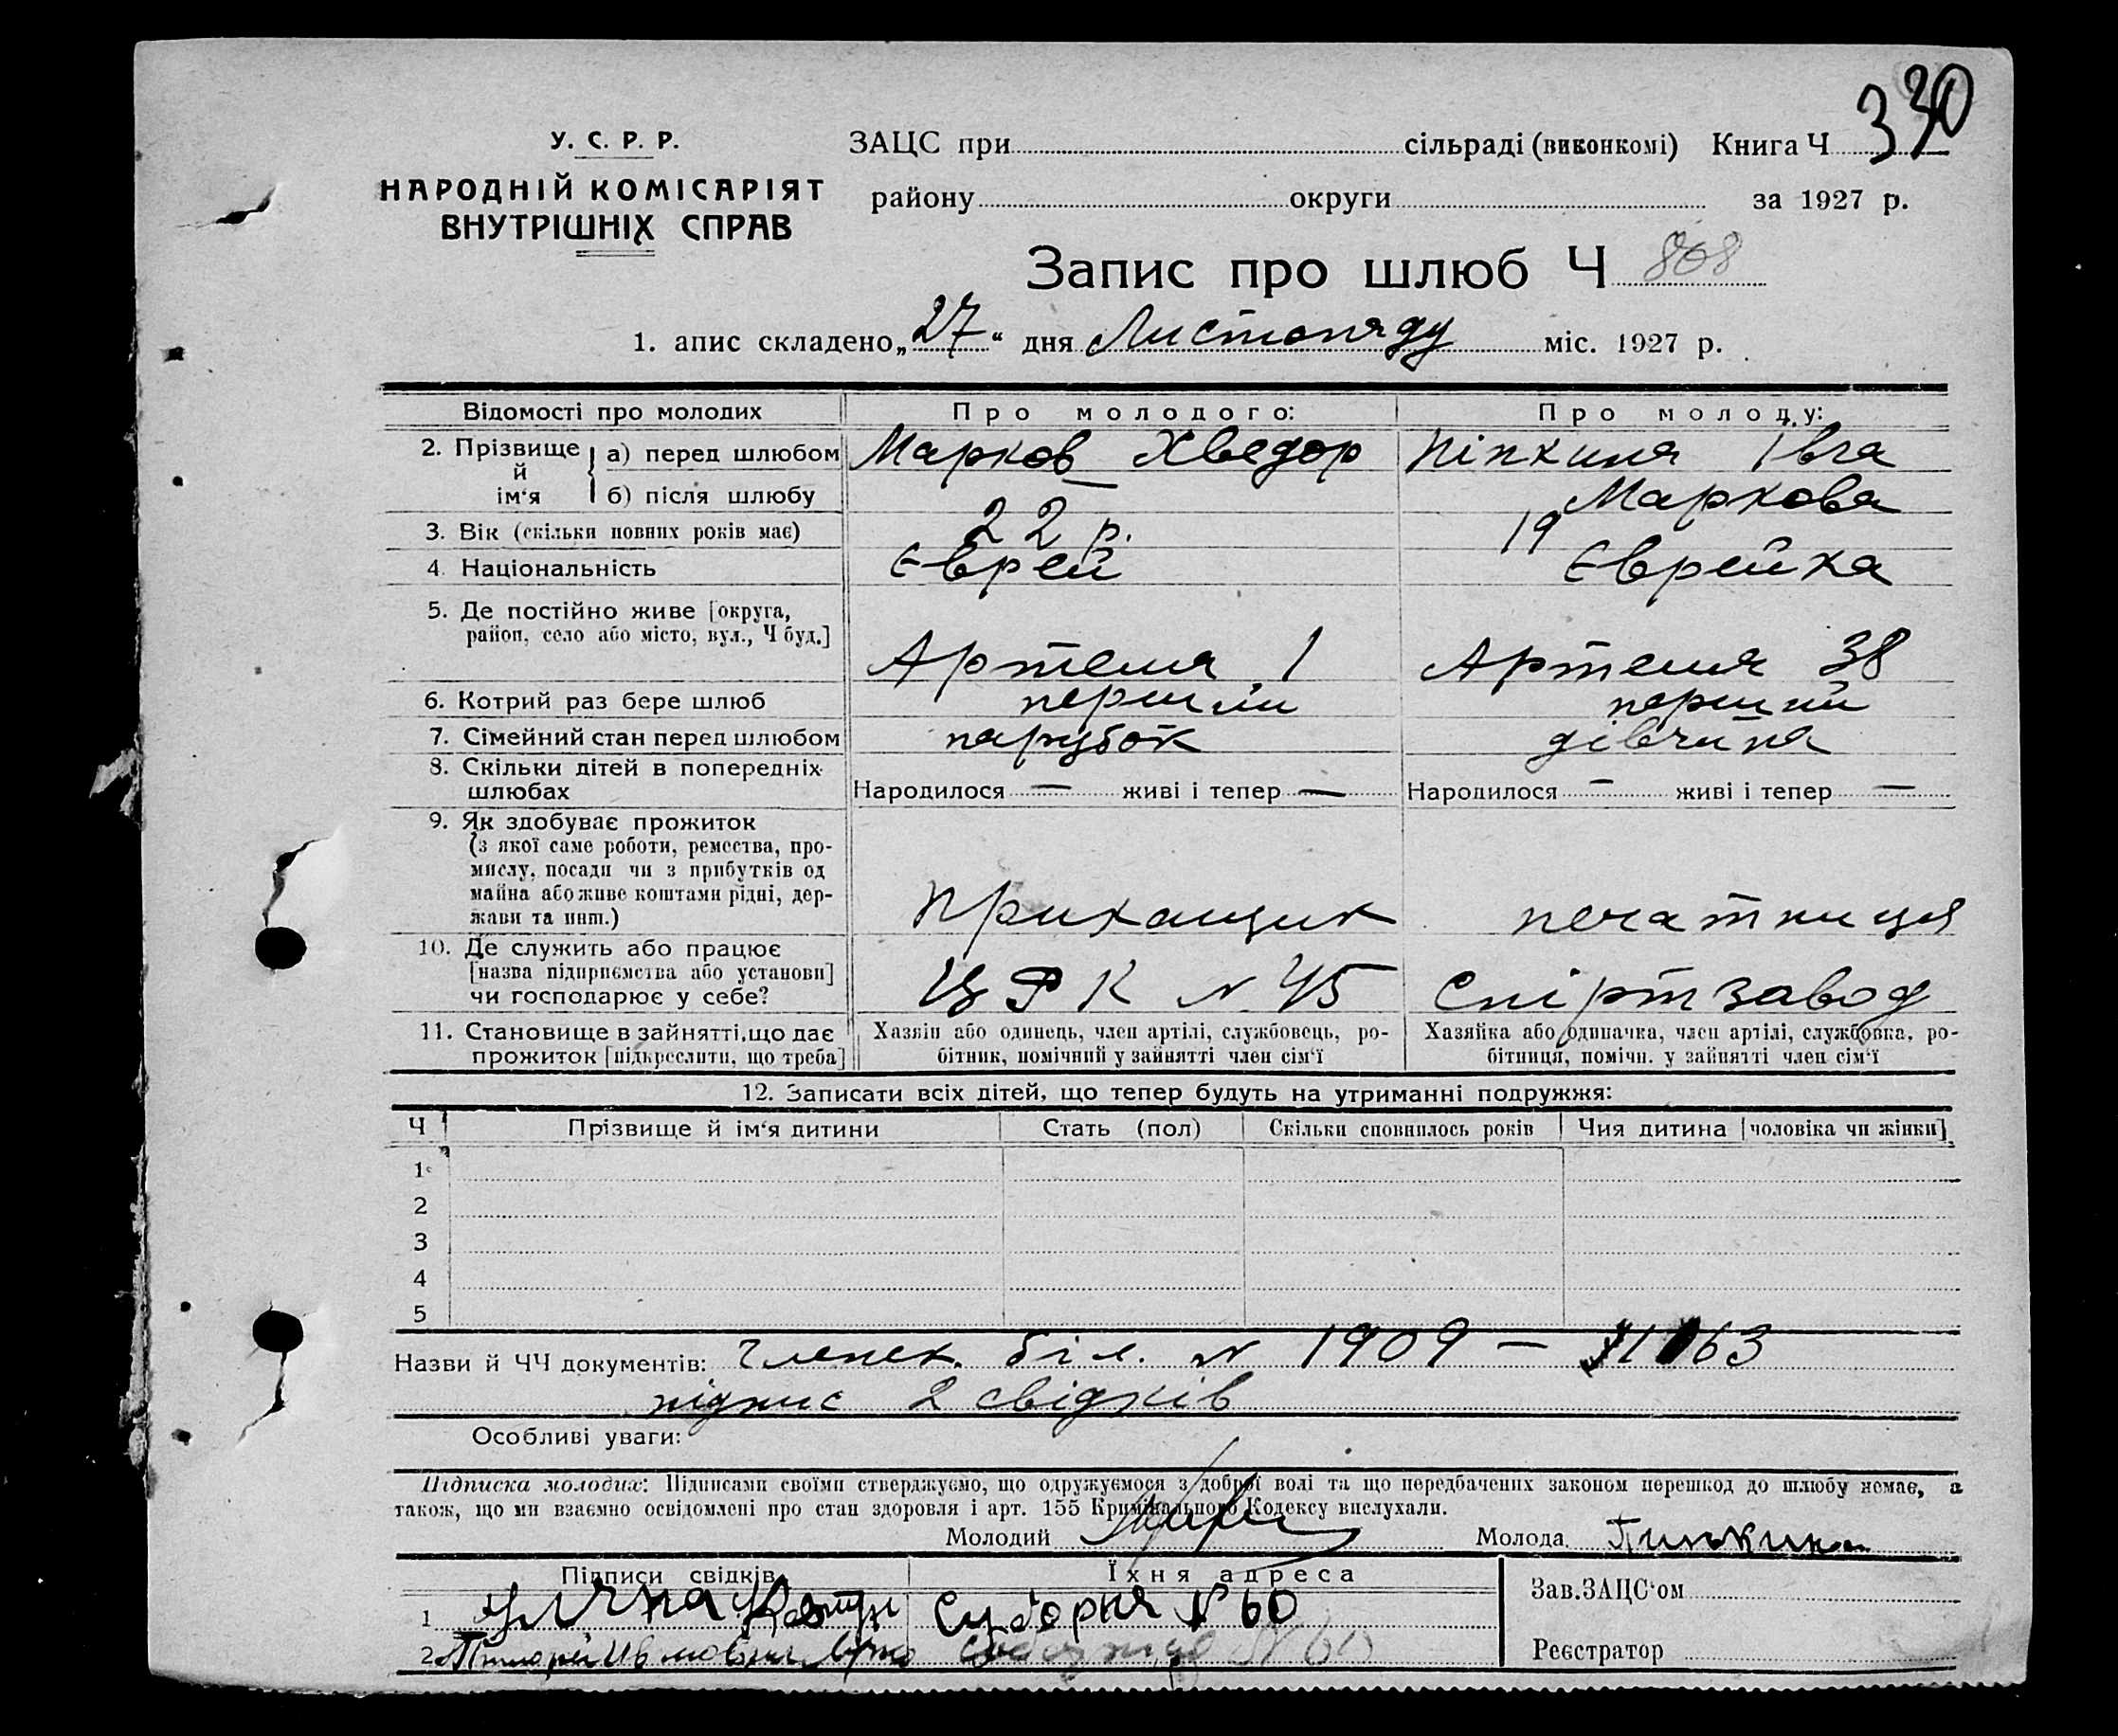 330
У. С. Р. Р.
НАРОДНІЙ КОМІСАРІЯТ
ВНУТРІШНІХ СПРАВ
ЗАЦС при сільраді (виконкомі) Книга Ч
району округи за 1927 р.
Запис про шлюб Ч 808
1. апис складено „27“ дня Листопаду міс. 1927 р.
Відомості про молодих Про молодого: Про молоду:
2. Прізвище й ім'я а) перед шлюбом Марков Хведор Пінкина Івга
б) після шлюбу — Маркова
3. Вік (скільки повних років має) 22 р. 19
4. Національність Єврей Єврейка
5. Де постійно живе [округа,
район, село або місто, вул., Ч буд.] Артема 1 Артема 38
6. Котрий раз бере шлюб перший перший
7. Сімейний стан перед шлюбом парубок дівчина
8. Скільки дітей в попередніх
шлюбах Народилося — живі і тепер — Народилося — живі і тепер —
9. Як здобуває прожиток
(з якої саме роботи, ремества, про-
мислу, посади чи з прибутків од
майна або живе коштами рідні, дер-
жави та инш.) Приканщик печатниця
10. Де служить або працює
[назва підприємства або установи]
чи господарює у себе? ЦРК N 45 Спіртзавод
11. Становище в зайнятті, що дає
прожиток [підкреслити, що треба]
Хазяїн або одинець, член артілі, службовець, ро-
бітник, помічний у зайнятті член сім'ї
Хазяйка або одиначка, член артілі, службовка, ро-
бітниця, помічн. у зайнятті член сім'ї
12. Записати всіх дітей, що тепер будуть на утриманні подружжя:
Ч Прізвище й ім'я дитини Стать (пол) Скільки сповнилось років Чия дитина [чоловіка чи жінки]
1
2
3
4
5
Назви й ЧЧ документів: Членск. біл. N 1909 — 63
підпис 2 свідків
Особливі уваги:
Підписка молодих: Підписами своїми стверджуємо, що одружуємося з доброї волі та що передбачених законом перешкод до шлюбу немає, а
також, що ми взаємно освідомлені про стан здоровля і арт. 155 Кримінального Кодексу вислухали.
Молодий Молода Пинькина
Підписи свідків Їхня адреса
1 N 60
2 N 60
Зав. ЗАЦС'ом
Реєстратор